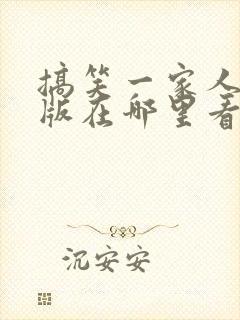 搞笑一家人
版在哪里看
沉安安